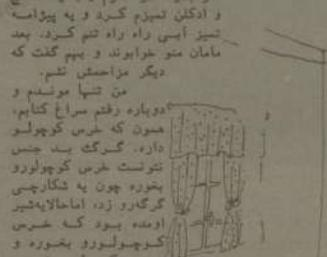 و ادکلن تمیزم کرد و یه پیژامه
تمیز آبی راه راه تنم کرد. بعد
مامان منو خوابوند و بهم گفت که
دیگر مزاحمش نشم.
من تنها موندم و
دوباره رفتم سراغ کتابم،
همون که خرس کوچولو
داره. گرگ بد جنس
نتونست خرس کوچولورو
بخوره چون یه شکارچی
گرگه‌رو زد، اماحالایه‌شیر
اومده بود که خرس
کوچولورو بخوره و